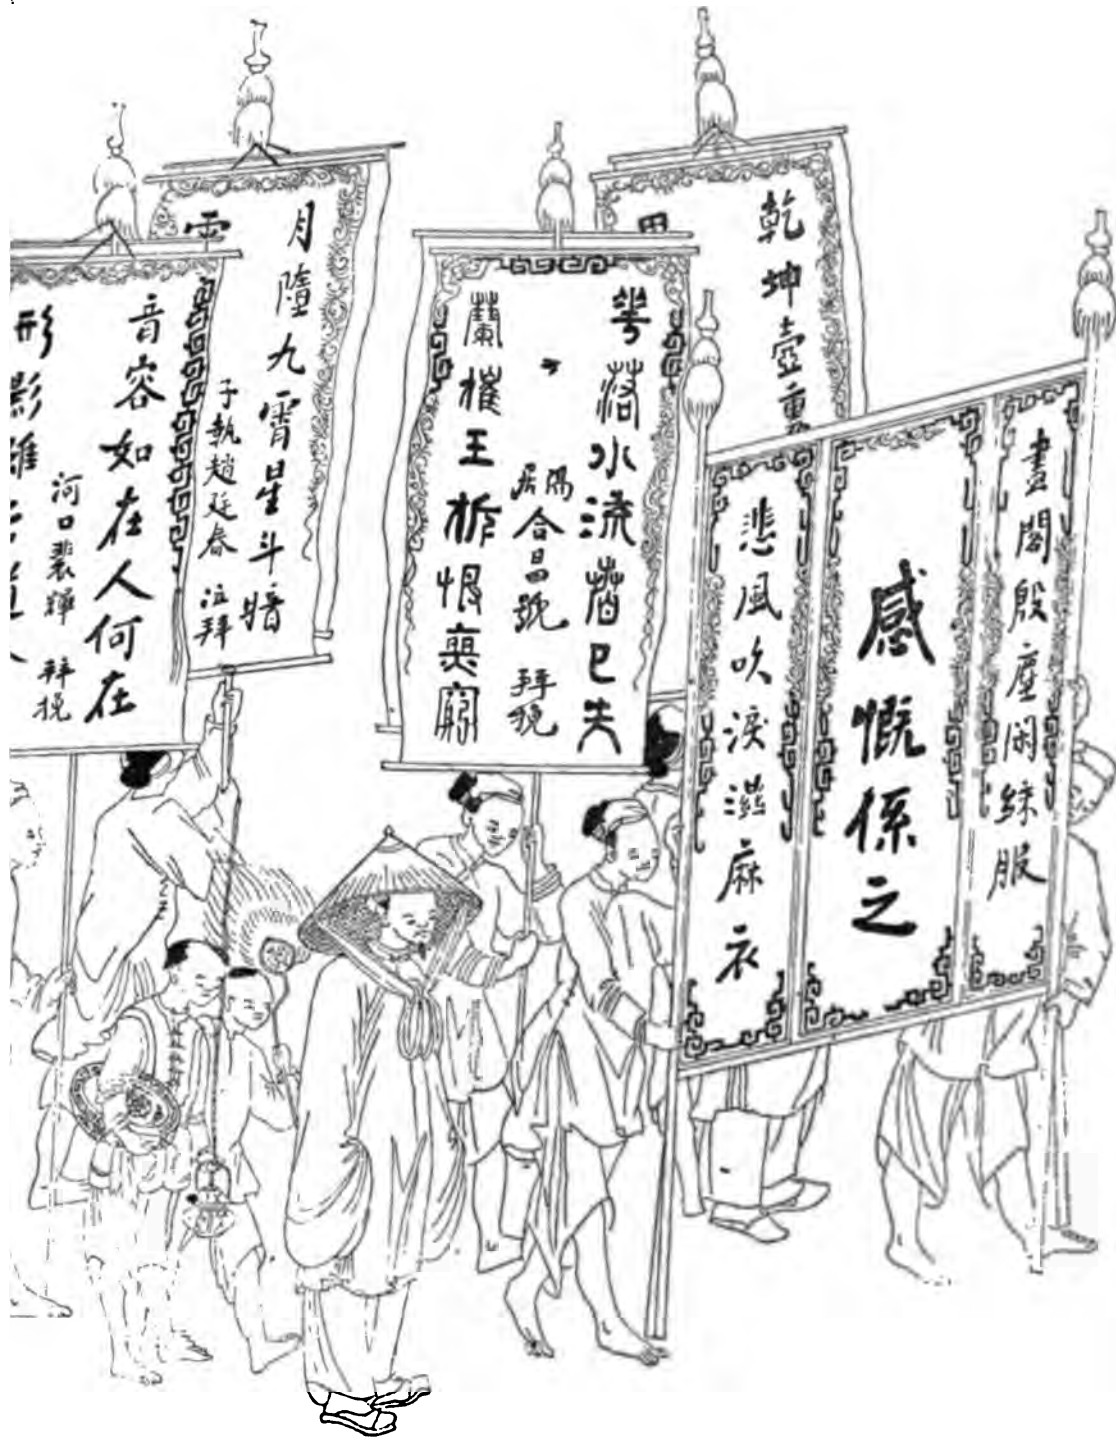 畫閣殷塵閑綵服
感慨係之
悲風吹淚濕麻衣
乾坤壺重
華落水流萅已去
隅居合昌號 拜挽
蘭摧玉折恨奚窮
月墮九霄星斗暗
子執趙廷春 泣拜
音容如在人何在
河口裴輝 拜挽
形影